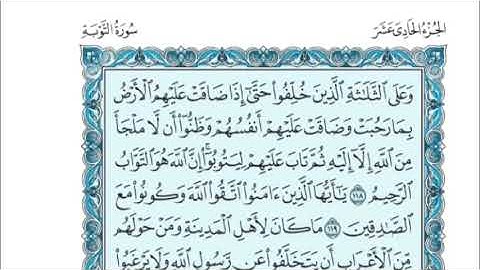 الجُزْءُ الحَادِي عَشَرَ سُورَةُ التَّوْبَةِ
وَعَلَى ٱلثَّلَٰثَةِ ٱلَّذِينَ خُلِّفُوا۟ حَتَّىٰٓ إِذَا ضَاقَتْ عَلَيْهِمُ ٱلْأَرْضُ
بِمَا رَحُبَتْ وَضَاقَتْ عَلَيْهِمْ أَنفُسُهُمْ وَظَنُّوٓا۟ أَن لَّا مَلْجَأَ
مِنَ ٱللَّهِ إِلَّآ إِلَيْهِ ثُمَّ تَابَ عَلَيْهِمْ لِيَتُوبُوٓا۟ۚ إِنَّ ٱللَّهَ هُوَ ٱلتَّوَّابُ
ٱلرَّحِيمُ ١١٨ يَٰٓأَيُّهَا ٱلَّذِينَ ءَامَنُوا۟ ٱتَّقُوا۟ ٱللَّهَ وَكُونُوا۟ مَعَ
ٱلصَّٰدِقِينَ ١١٩ مَا كَانَ لِأَهْلِ ٱلْمَدِينَةِ وَمَنْ حَوْلَهُم
مِّنَ ٱلْأَعْرَابِ أَن يَتَخَلَّفُوا۟ عَن رَّسُولِ ٱللَّهِ وَلَا يَرْغَبُوا۟